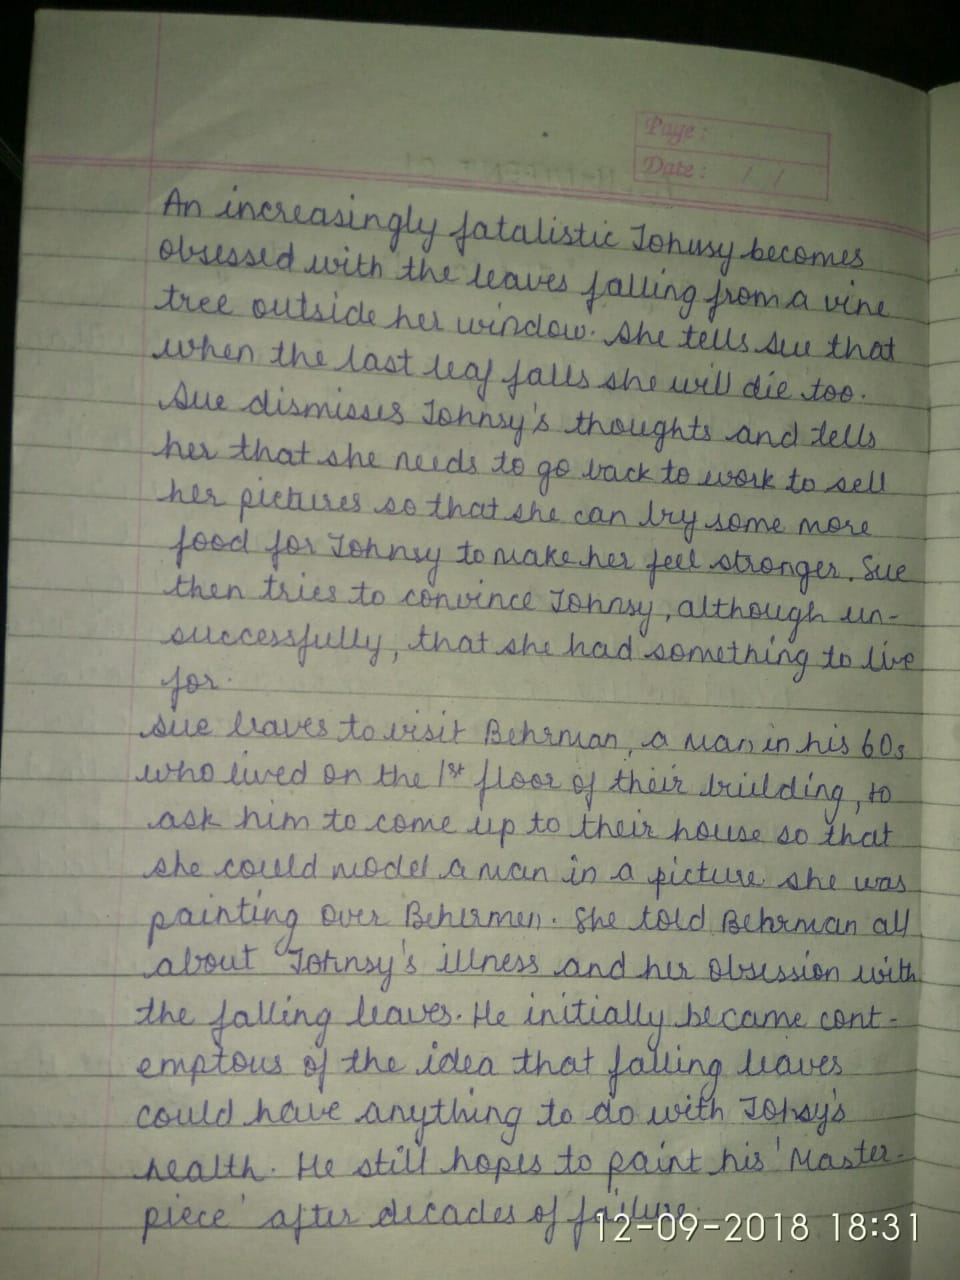 Page:
Date: / /
An increasingly fatalistic Johnsy becomes
obsessed with the leaves falling from a vine
tree outside her window. She tells Sue that
when the last leaf falls she will die too.
Sue dismisses Johnsy's thoughts and tells
her that she needs to go back to work to sell
her pictures so that she can bry some more
food for Johnsy to make her feel stronger. Sue
then tries to convince Johnsy, although un-
successfully, that she had something to live
for.
Sue leaves to visit Behrman, a man in his 60s
who lived on the 1st floor of their building, to
ask him to come up to their house so that
she could model a man in a picture she was
painting over Behrmen. She told Behrman all
about Johnsy's illness and her obsession with
the falling leaves. He initially became cont-
emptous of the idea that falling leaves
could have anything to do with Johsy's
health. He still hopes to paint his 'Master-
piece' after decades of failure.
12-09-2018 18:31